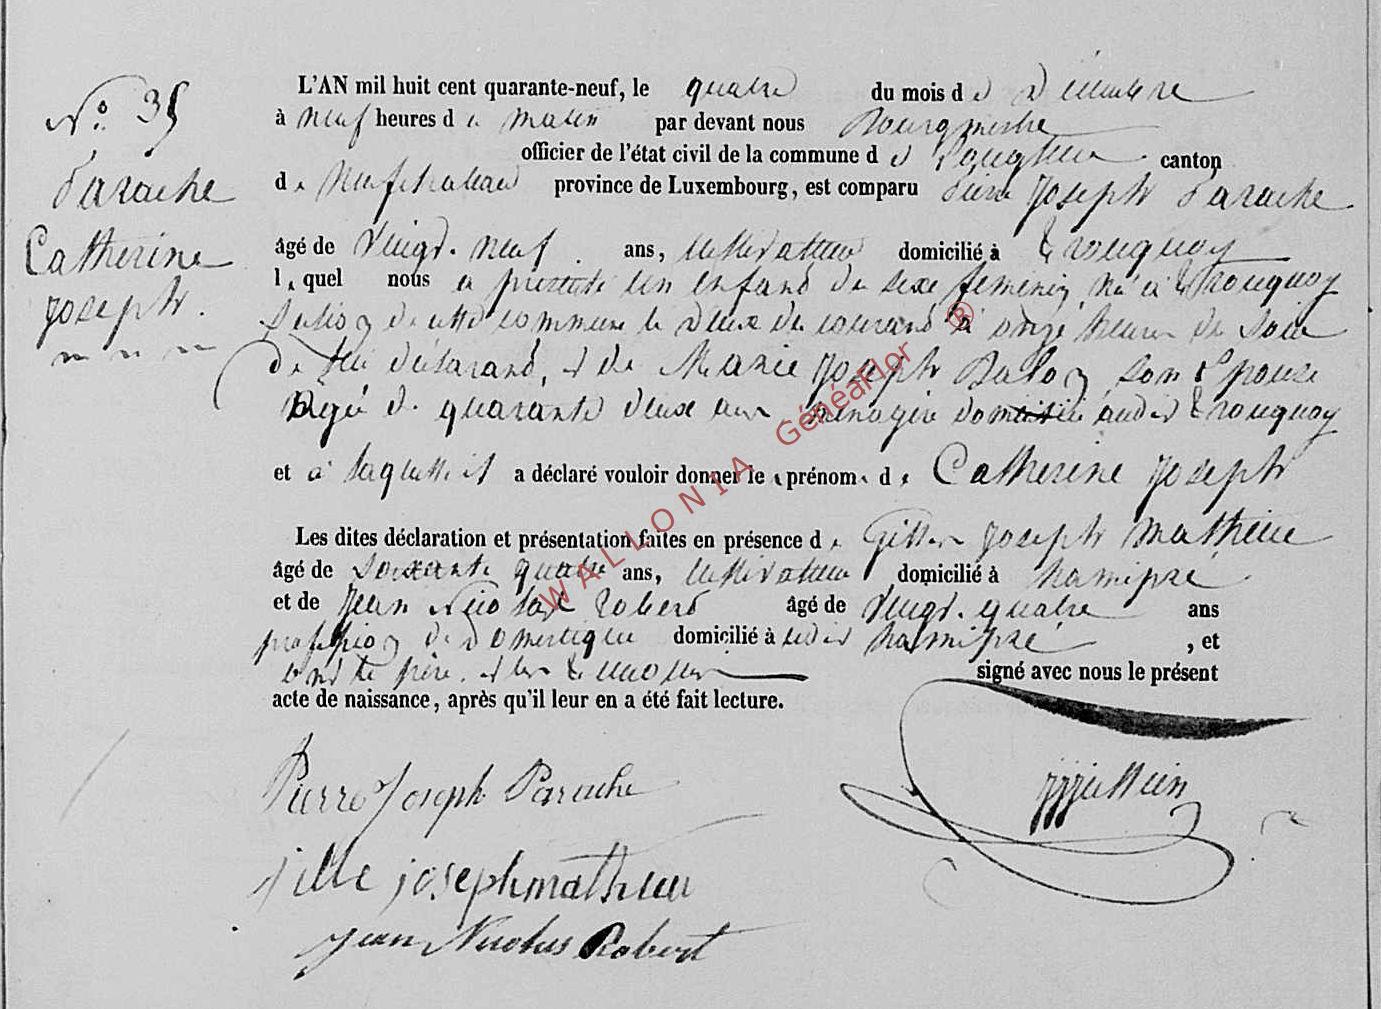 N.º 35
Parache
Catherine
Joseph.
L'AN mil huit cent quarante-neuf, le quatre du mois de Décembre
à neuf heures du matin par devant nous Bourgmestre
officier de l'état civil de la commune de Longlier canton
de Neufchateau province de Luxembourg, est comparu Pierre Joseph Parache
âgé de vingt-neuf ans, cultivateur domicilié à Tronquoy
lequel nous a présenté un enfant du sexe féminin, né à Tronquoy
Section de cette commune le deux du courant à onze heures du soir
de lui déclarant, et de Marie Joseph son Epouse
agée de quarante deux ans, ménagère audit Tronquoy
et à laquelle il a déclaré vouloir donner le prénom de Catherine Joseph
Les dites déclaration et présentation faites en présence de Gille Joseph Mathieu
âgé de soixante quatre ans, cultivateur domicilié à hamipré
et de Jean Nicolas Robert âgé de vingt-quatre ans
profession de Domestique domicilié à audit hamipré, et
ont le père et les témoins signé avec nous le présent
acte de naissance, après qu'il leur en a été fait lecture.
Pierre Joseph Parache
gille joseph mathieu
Jean Nicolas Robert
WALLONIA GénéaFlor ®